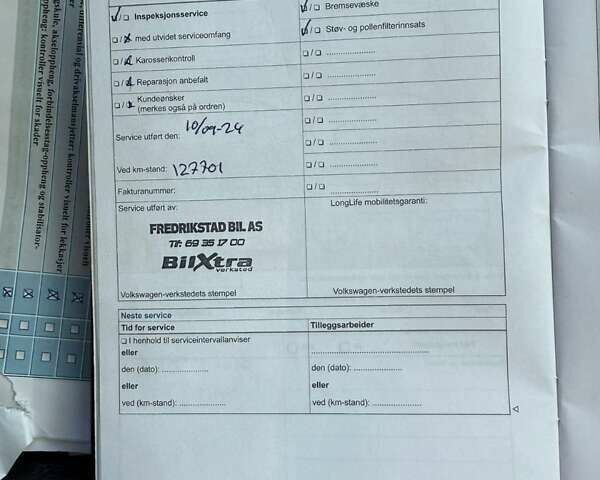 Bremsevæske
Inspeksjonsservice
Støv- og pollenfilterinnsats
med utvidet serviceomfang
Karosserikontroll
Reparasjon anbefalt
Kundeønsker
(merkes også på ordren)
Service utført den: 10/09-24
Ved km-stand: 127701
Fakturanummer:
Service utført av:
LongLife mobilitetsgaranti:
FREDRIKSTAD BIL AS
Tlf: 69 35 17 00
BilXtra
verksted
Volkswagen-verkstedets stempel
Volkswagen-verkstedets stempel
Neste service
Tid for service
Tilleggsarbeider
I henhold til serviceintervallanviser
eller
den (dato): ....................
den (dato): ....................
eller
eller
ved (km-stand): ....................
ved (km-stand): ....................
differensial og drivakselmansjetter: kontroller visuelt for lekkasjer
oppheng: kontroller visuelt for skader